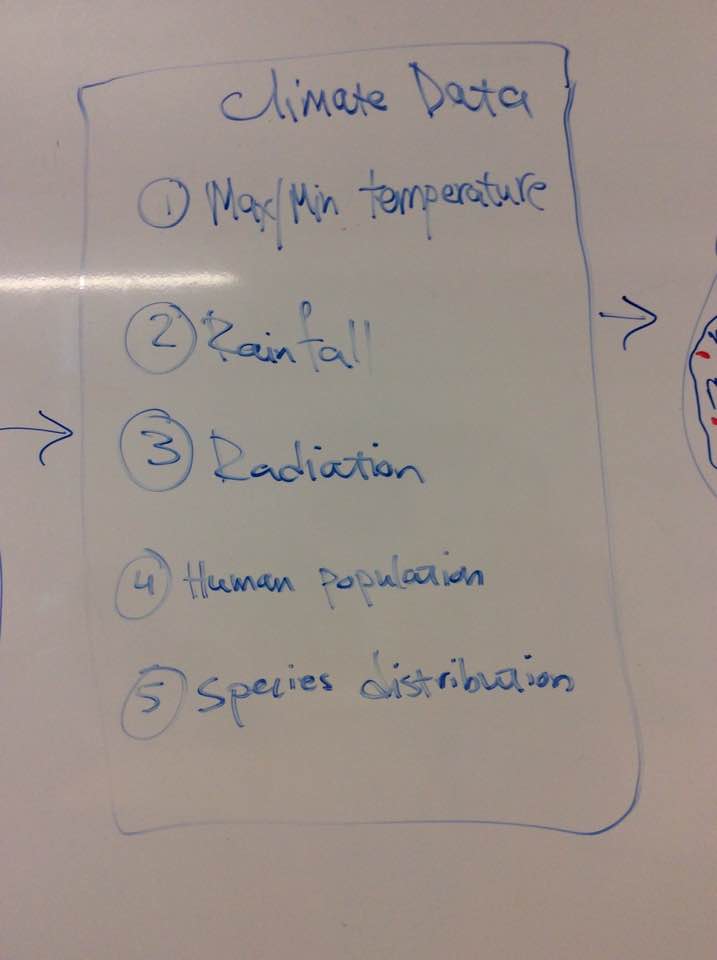 Climate Data
1 Max/Min temperature
2 Rainfall
3 Radiation
4 Human population
5 Species distribution